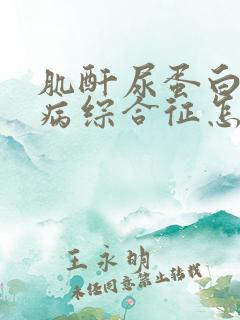 肌酐尿蛋白
病综合征怎
王永明
未经同意禁止转载